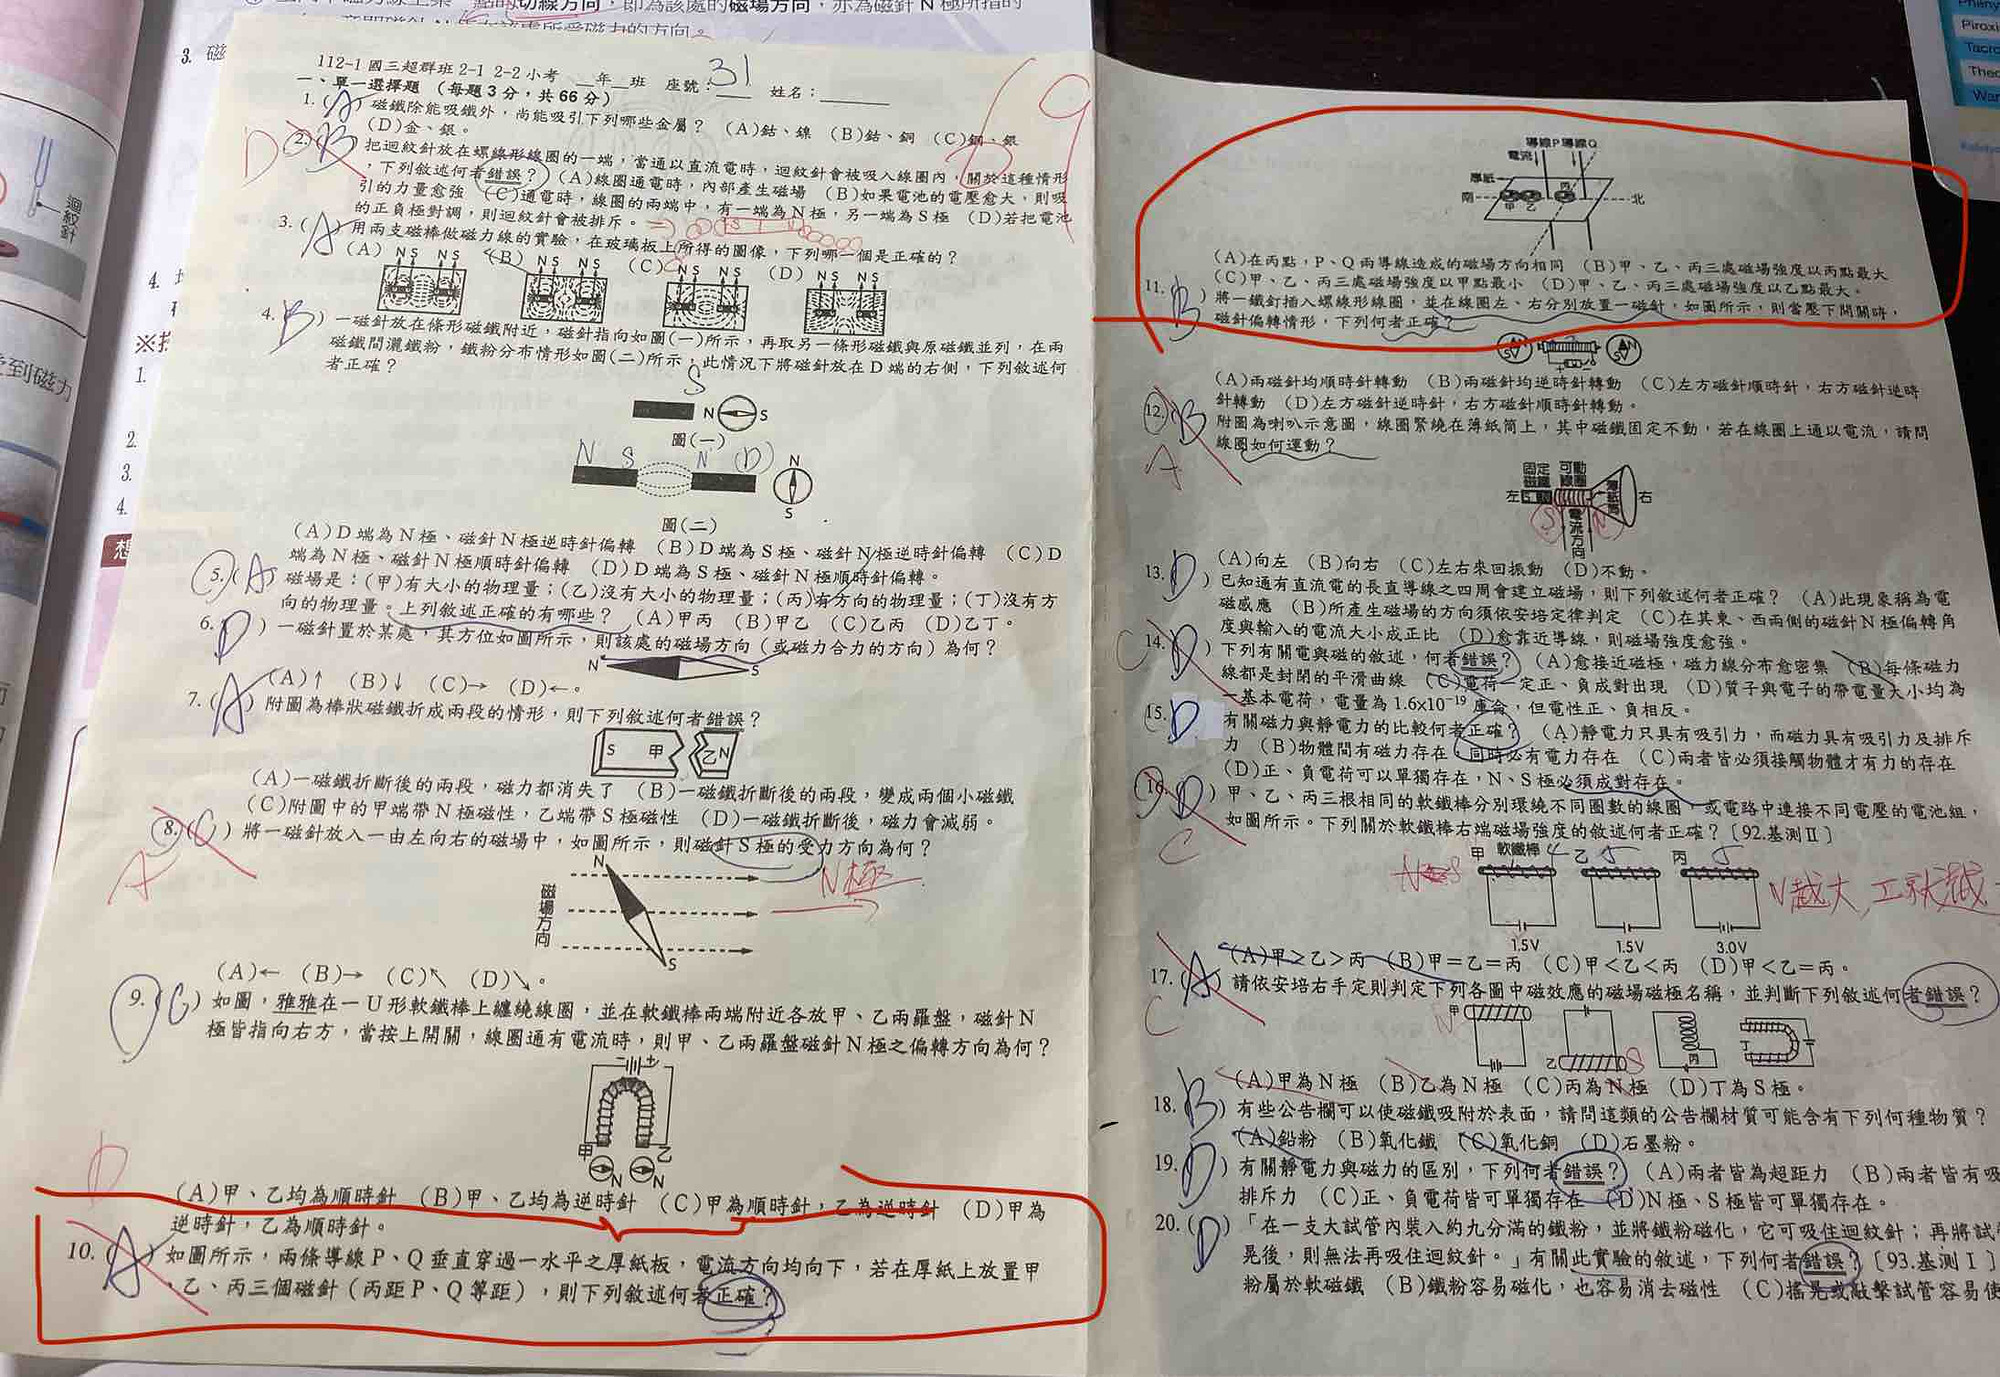 點的切線方向，即為該處的磁場方向，亦為磁針 N 極所指的
3. 磁
迴紋針
4.
※
受到磁力
1.
2.
3.
4.
想
112-1 國三超群班 2-1 2-2 小考 __年__班 座號：31 姓名：______
69
一、單一選擇題 (每題 3 分，共 66 分)
1. (A) 磁鐵除能吸鐵外，尚能吸引下列哪些金屬？ (A)鈷、鎳 (B)鈷、銅 (C)銅、銀
(D)金、銀。
D 2. (B) 把迴紋針放在螺線形線圈的一端，當通以直流電時，迴紋針會被吸入線圈內，關於這種情形
，下列敘述何者錯誤？ (A)線圈通電時，內部產生磁場 (B)如果電池的電壓愈大，則吸
引的力量愈強 (C)通電時，線圈的兩端中，有一端為 N 極，另一端為 S 極 (D)若把電池
的正負極對調，則迴紋針會被排斥。
3. (A) 用兩支磁棒做磁力線的實驗，在玻璃板上所得的圖像，下列哪一個是正確的？
(A) N S N S (B) N S N S (C) N S N S (D) N S N S
4. (B) 一磁針放在條形磁鐵附近，磁針指向如圖(一)所示，再取另一條形磁鐵與原磁鐵並列，在兩
磁鐵間灑鐵粉，鐵粉分布情形如圖(二)所示，此情況下將磁針放在 D 端的右側，下列敘述何
者正確？
S
N S
圖(一)
N S N (D) N
S
圖(二)
(A)D 端為 N 極、磁針 N 極逆時針偏轉 (B)D 端為 S 極、磁針 N 極逆時針偏轉 (C)D
端為 N 極、磁針 N 極順時針偏轉 (D)D 端為 S 極、磁針 N 極順時針偏轉。
5. (A) 磁場是：(甲)有大小的物理量；(乙)沒有大小的物理量；(丙)有方向的物理量；(丁)沒有方
向的物理量。上列敘述正確的有哪些？ (A)甲丙 (B)甲乙 (C)乙丙 (D)乙丁。
6. (D) 一磁針置於某處，其方位如圖所示，則該處的磁場方向（或磁力合力的方向）為何？
N S
(A)↑ (B)↓ (C)→ (D)←。
7. (A) 附圖為棒狀磁鐵折成兩段的情形，則下列敘述何者錯誤？
S 甲 乙 N
(A)一磁鐵折斷後的兩段，磁力都消失了 (B)一磁鐵折斷後的兩段，變成兩個小磁鐵
(C)附圖中的甲端帶 N 極磁性，乙端帶 S 極磁性 (D)一磁鐵折斷後，磁力會減弱。
A 8. (C) 將一磁針放入一由左向右的磁場中，如圖所示，則磁針 S 極的受力方向為何？
N
N極
磁場方向
S
(A)← (B)→ (C)↖ (D)↘。
9. (C) 如圖，雅雅在一 U 形軟鐵棒上纏繞線圈，並在軟鐵棒兩端附近各放甲、乙兩羅盤，磁針 N
極皆指向右方，當按上開關，線圈通有電流時，則甲、乙兩羅盤磁針 N 極之偏轉方向為何？
- +
甲 乙
N N
(A)甲、乙均為順時針 (B)甲、乙均為逆時針 (C)甲為順時針，乙為逆時針 (D)甲為
逆時針，乙為順時針。
D 10. (A) 如圖所示，兩條導線 P、Q 垂直穿過一水平之厚紙板，電流方向均向下，若在厚紙上放置甲
、乙、丙三個磁針（丙距 P、Q 等距），則下列敘述何者正確？
導線P 導線Q
電流
厚紙
南 甲 乙 丙 北
(A)在丙點，P、Q 兩導線造成的磁場方向相同 (B)甲、乙、丙三處磁場強度以丙點最大
(C)甲、乙、丙三處磁場強度以甲點最小 (D)甲、乙、丙三處磁場強度以乙點最大。
11. (B) 將一鐵釘插入螺線形線圈，並在線圈左、右分別放置一磁針，如圖所示，則當壓下開關時，
磁針偏轉情形，下列何者正確？
(A)兩磁針均順時針轉動 (B)兩磁針均逆時針轉動 (C)左方磁針順時針，右方磁針逆時
針轉動 (D)左方磁針逆時針，右方磁針順時針轉動。
12. (B) 附圖為喇叭示意圖，線圈緊繞在薄紙筒上，其中磁鐵固定不動，若在線圈上通以電流，請問
線圈如何運動？
A
固定磁鐵 可動線圈
左 S N 薄紙筒 右
S N
電流方向
(A)向左 (B)向右 (C)左右來回振動 (D)不動。
13. (D) 已知通有直流電的長直導線之四周會建立磁場，則下列敘述何者正確？ (A)此現象稱為電
磁感應 (B)所產生磁場的方向須依安培定律判定 (C)在其東、西兩側的磁針 N 極偏轉角
度與輸入的電流大小成正比 (D)愈靠近導線，則磁場強度愈強。
C 14. (D) 下列有關電與磁的敘述，何者錯誤？ (A)愈接近磁極，磁力線分布愈密集 (B)每條磁力
線都是封閉的平滑曲線 (C)電荷一定正、負成對出現 (D)質子與電子的帶電量大小均為
一基本電荷，電量為 1.6×10⁻¹⁹ 庫侖，但電性正、負相反。
15. (D 有關磁力與靜電力的比較何者正確？ (A)靜電力只具有吸引力，而磁力具有吸引力及排斥
力 (B)物體間有磁力存在，同時必有電力存在 (C)兩者皆必須接觸物體才有力的存在
(D)正、負電荷可以單獨存在，N、S 極必須成對存在。
16. (D) 甲、乙、丙三根相同的軟鐵棒分別環繞不同圈數的線圈，或電路中連接不同電壓的電池組，
如圖所示。下列關於軟鐵棒右端磁場強度的敘述何者正確？〔92.基測Ⅱ〕
C
甲 軟鐵棒 4 乙 5 丙 5
V越大，I就越
1.5V 1.5V 3.0V
(A)甲＞乙＞丙 (B)甲＝乙＝丙 (C)甲＜乙＜丙 (D)甲＜乙＝丙。
17. (A) 請依安培右手定則判定下列各圖中磁效應的磁場磁極名稱，並判斷下列敘述何者錯誤？
C
N 甲 乙 S 丙 丁
(A)甲為 N 極 (B)乙為 N 極 (C)丙為 N 極 (D)丁為 S 極。
18. (B) 有些公告欄可以使磁鐵吸附於表面，請問這類的公告欄材質可能含有下列何種物質？
(A)鉛粉 (B)氧化鐵 (C)氧化銅 (D)石墨粉。
19. (D) 有關靜電力與磁力的區別，下列何者錯誤？ (A)兩者皆為超距力 (B)兩者皆有吸
排斥力 (C)正、負電荷皆可單獨存在 (D)N 極、S 極皆可單獨存在。
20. (D) 「在一支大試管內裝入約九分滿的鐵粉，並將鐵粉磁化，它可吸住迴紋針；再將試
晃後，則無法再吸住迴紋針。」有關此實驗的敘述，下列何者錯誤？〔93.基測Ⅰ〕
粉屬於軟磁鐵 (B)鐵粉容易磁化，也容易消去磁性 (C)搖晃或敲擊試管容易使
Piroxi
Tacro
Theo
War